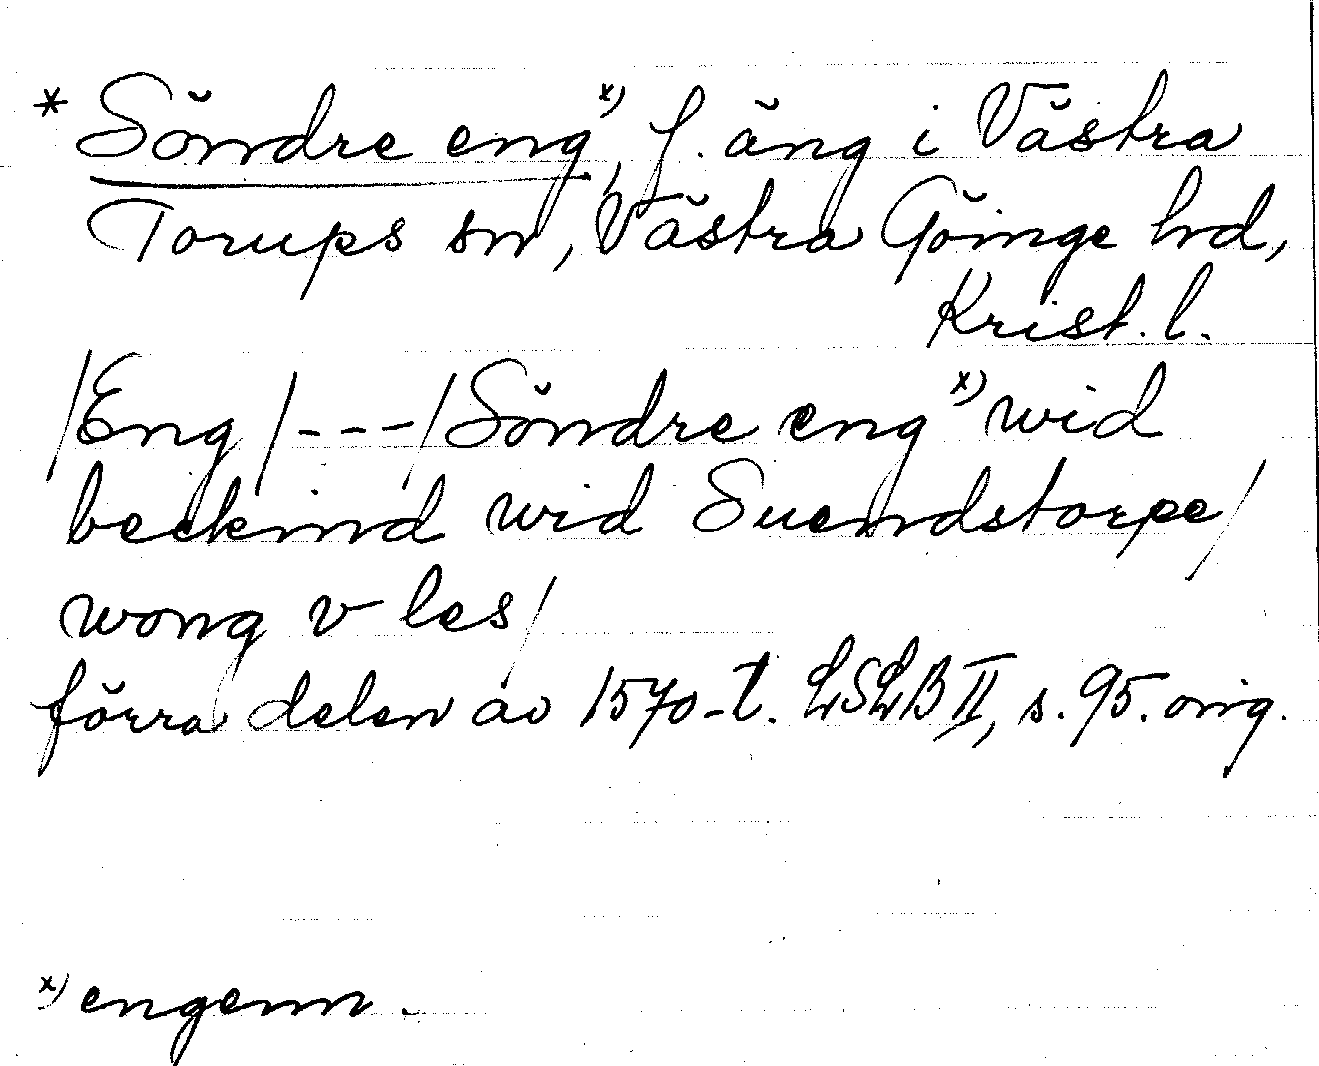 * Söndre eng x), f. äng i Västra
Torups sn, Västra Göinge hd,
Krist. l.
/Eng/---/Söndre eng x) wid
beckind wid Suendstorpe/
wong v les/
förra delen av 1570-t. LSLB II, s. 95. orig.
x) engenn.